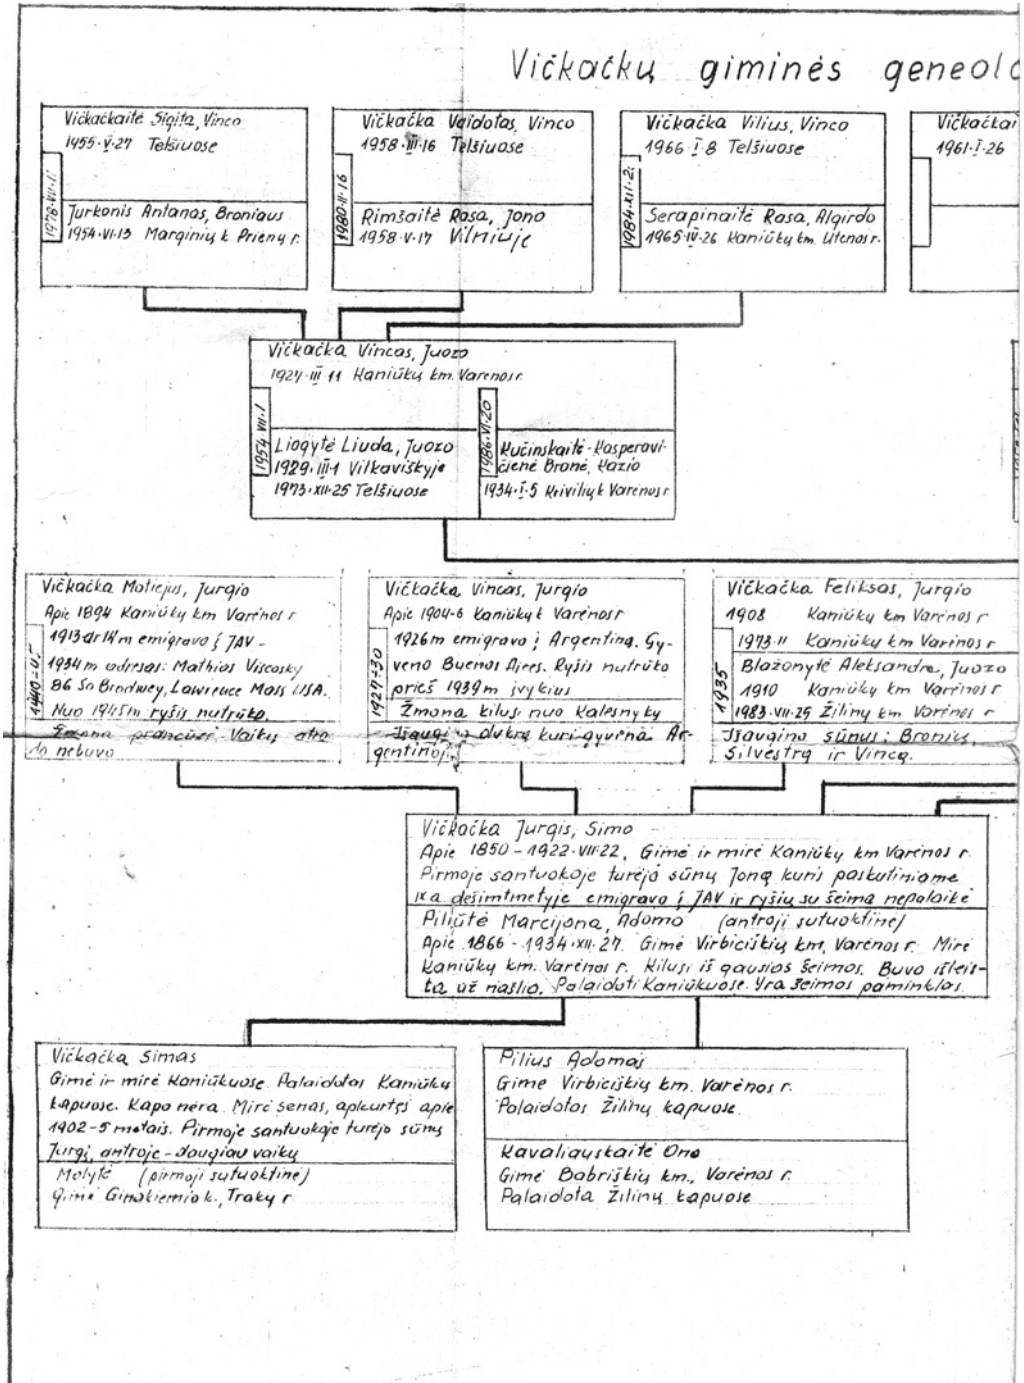 Vičkačkų giminės geneolo
Vičkačkaitė Sigita, Vinco
1955·V·27 Telšiuose
1978·VII·11
Jurkonis Antanas, Broniaus
1954·VI·13 Marginių k. Prienų r.
Vičkačka Vaidotas, Vinco
1958·III·16 Telšiuose
1980·II·16
Rimšaitė Rasa, Jono
1958·V·17 Vilniuje
Vičkačka Vilius, Vinco
1966·I·8 Telšiuose
1984·XII·2
Serapinaitė Rasa, Algirdo
1965·IV·26 Kaniūkų km. Utenos r.
Vičkačkai
1961·I·26
Vičkačka Vincas, Juozo
1927·III·11 Kaniūkų km. Varėnos r.
1954·VII·1
Liogytė Liuda, Juozo
1929·III·1 Vilkaviškyje
1973·XII·25 Telšiuose
1986·VI·20
Kučinskaitė-Kasperavi-
čienė Bronė, Kazio
1934·I·5 Krivilių k Varėnos r
Vičkačka Motiejus, Jurgio
Apie 1894 Kaniūkų km Varėnos r
1913 ar 14 m emigravo į JAV -
1934 m adresas: Mathios Viscosky
86 So Brodwey, Lawrence Moss USA.
Nuo 1945 m ryšis nutrūko.
Žmona prancūzė. Vaikų atro
do nebuvo
Vičkačka Vincas, Jurgio
Apie 1904-6 Kaniūkų k Varėnos r
1926 m emigravo į Argentiną. Gy-
veno Buenos Aires. Ryšis nutrūko
prieš 1939 m įvykius
1927-30
Žmona kilusi nuo Kalesnykų
Išaugino dukrą kuri gyvena Ar-
gentinoj.
Vičkačka Feliksas, Jurgio
1908 Kaniūkų km Varėnos r
1973·II Kaniūkų km Varėnos r
1935
Blažonytė Aleksandra, Juozo
1910 Kaniūkų km Varėnos r
1983·VII·25 Žilinų km Varėnos r
Išaugino sūnus: Bronius,
Silvestrą ir Vincą.
Vičkačka Jurgis, Simo
Apie 1850-1922·VII·22, Gimė ir mirė Kaniūkų km Varėnos r.
Pirmoje santuokoje turėjo sūnų Joną kuris paskutiniame
IX a dešimtmetyje emigravo į JAV ir ryšių su šeima nepalaikė
Piliūtė Marcijona, Adomo (antroji sutuoktinė)
Apie 1866-1934·XII·27. Gimė Virbiciškių km, Varėnos r. Mirė
Kaniūkų km. Varėnos r. Kilusi iš gausios šeimos. Buvo išleis-
ta už našlio. Palaidoti Kaniūkuose. Yra šeimos paminklas.
Vičkačka Simas
Gimė ir mirė Kaniūkuose. Palaidotas Kaniūkų
kapuose. Kapo nėra. Mirė senas, apkurtęs apie
1902-5 metais. Pirmoje santuokoje turėjo sūnų
Jurgį, antroje - daugiau vaikų
Molytė (pirmoji sutuoktinė)
gimė Ginakiemio k., Trakų r.
Pilius Adomas
Gimė Virbiciškių km. Varėnos r.
Palaidotas Žilinų kapuose.
Kavaliauskaitė Ona
Gimė Babriškių km., Varėnos r.
Palaidota Žilinų kapuose